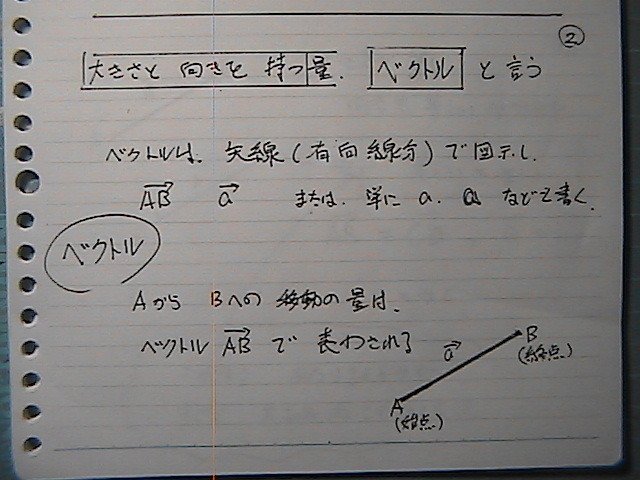 ②
大きさと 向きを 持つ量. ベクトル と言う
ベクトルは、矢線(有向線分)で図示し.
AB→ a→ または、単に a. a などで書く.
ベクトル
Aから Bへの 移動の量は、
ベクトル AB→ で 表わされる
a→
B
(終点)
A
(始点)